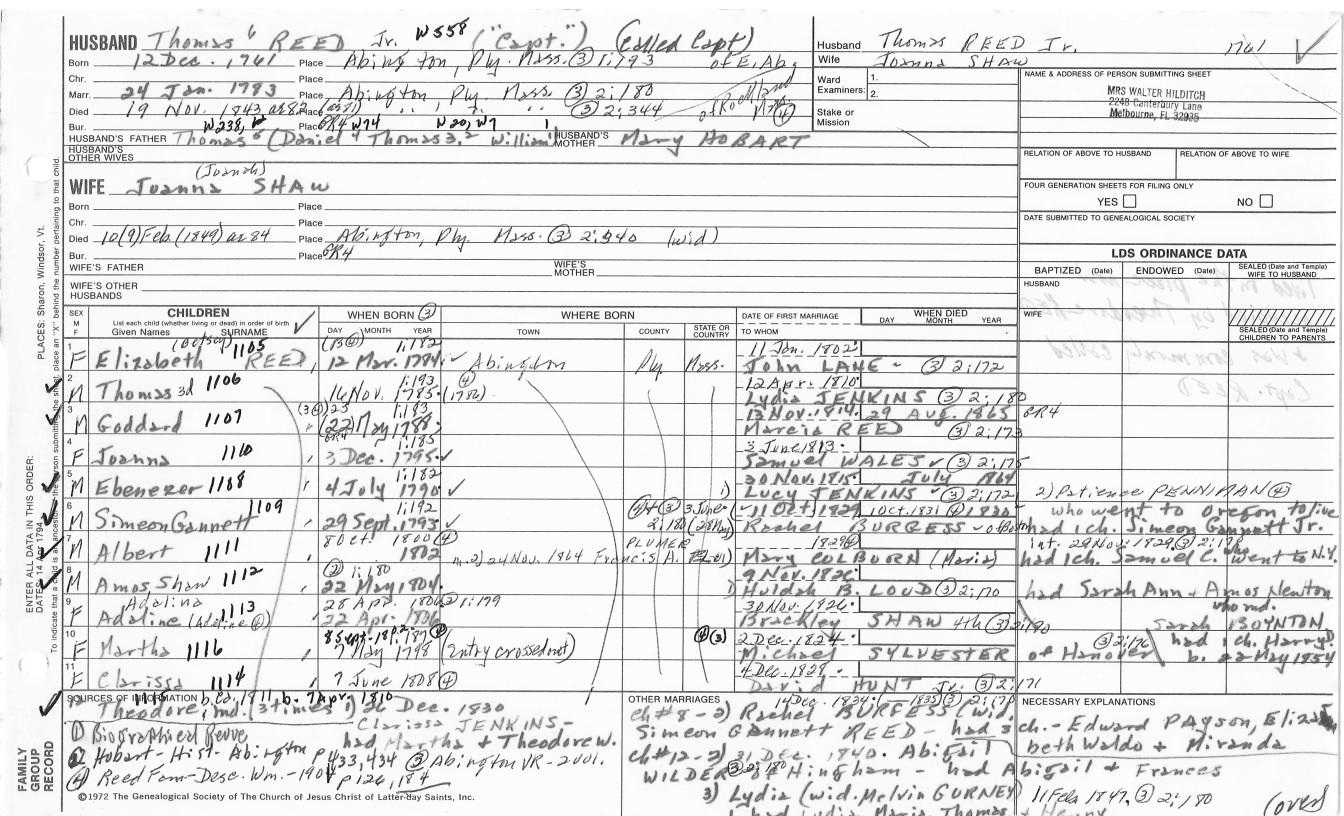 HUSBAND Thomas 6 REED Jr. W558 ("Capt.") (Called Capt)
Born 12 Dec. 1761 Place Abington, Ply. Mass. (3) 1:193 of E. Ab.
Chr. Place
Marr. 24 Jan. 1783 Place Abington Ply Mass (3) 2:180 of Rockland Mass (4)
Died 19 Nov. 1843, ae 82 (ae 81) (3) 2:344
Bur. W238, Place GR4 W74 W20, W7
HUSBAND'S FATHER Thomas 5 (Daniel 4 Thomas 3, 2 William 1) HUSBAND'S MOTHER Mary HOBART
HUSBAND'S OTHER WIVES
Husband Thomas REED Jr. 1761
Wife Joanna SHAW
Ward Examiners: 1.
2.
Stake or Mission
NAME & ADDRESS OF PERSON SUBMITTING SHEET
MRS WALTER HILDITCH
2248 Canterbury Lane
Melbourne, FL 32935
RELATION OF ABOVE TO HUSBAND RELATION OF ABOVE TO WIFE
FOUR GENERATION SHEETS FOR FILING ONLY
YES NO
DATE SUBMITTED TO GENEALOGICAL SOCIETY
(Joanah)
WIFE Joanna SHAW
Born Place
Chr. Place
Died 10(9) Feb. (1849) ae 84 Place Abington, Ply. Mass. (3) 2:340 (wid)
Bur. Place GR4
WIFE'S FATHER WIFE'S MOTHER
WIFE'S OTHER HUSBANDS
LDS ORDINANCE DATA
BAPTIZED (Date) ENDOWED (Date) SEALED (Date and Temple) WIFE TO HUSBAND
HUSBAND
WIFE
SEALED (Date and Temple) CHILDREN TO PARENTS
SEX M F
CHILDREN
List each child (whether living or dead) in order of birth
Given Names SURNAME
WHEN BORN (3)
DAY MONTH YEAR
WHERE BORN
TOWN COUNTY STATE OR COUNTRY
DATE OF FIRST MARRIAGE
TO WHOM
WHEN DIED
DAY MONTH YEAR
(Betsey) 1105 1:182 11 Jan. 1802
1 F Elizabeth REED, 12 Mar. 1784 Abington Ply Mass. John LANE - (3) 2:172
1:193 (4) 12 Apr. 1810
2 M Thomas 3d 1106 16 Nov. 1785 (1786) Lydia JENKINS (3) 2:180
1:183 13 Nov. 1814 29 Aug. 1865 GR4
3 M Goddard 1107 (22) May 1788 Marcia REED (3) 2:173
1:185 3 June 1813
4 F Joanna 1110 3 Dec. 1795 Samuel WALES (3) 2:175
1:182 30 Nov. 1815 July 1864
5 M Ebenezer 1108 4 July 1790 1) Lucy JENKINS (3) 2:172 2) Patience PENNIMAN (4)
1109 1:192 11 Oct. 1829 who went to Oregon to live
6 M Simeon Gannett 29 Sept. 1793 Rachel BURGESS had 1 ch. Simeon Gannett Jr.
8 Oct. 1800 (4) PLUMER int. 29 Nov. 1829 (3)
7 M Albert 1111 1802 m. 2) 24 Nov. 1864 Francis A. Mary COLBURN (Maria) had 1 ch. Samuel C. who went to N.Y.
(2) 1:180 9 Nov. 1826
8 M Amos Shaw 1112 22 May 1804 1) Huldah B. LOUD (3) 2:170 had Sarah Ann + Amos Newton
Adalina 28 Apr. 1806 (2) 1:179 30 Nov. 1826 who md.
9 F Adaline (Adaline) 1113 22 Apr. 1806 Brackley SHAW 4th (3) 2:170 Sarah BOYNTON
(4)(3) 2 Dec. 1824 (3) 2:176 had 1 ch. Harry
10 F Martha 1116 7 May 1798 (entry crossed out) Michael SYLVESTER of Hanover b. 22 May 1854
4 Dec. 1828
11 F Clarissa 1114 7 June 1808 (4) David HUNT Jr. (3) 2:171
SOURCES OF INFORMATION
Theodore, md. (3 times) 1) 26 Dec. 1830
Clarissa JENKINS -
(1) Biographical Revue had Martha + Theodore W.
(2) Hobart - Hist. Abington p 433, 434 (3) Abington VR - 2 vol.
(4) Reed Fam - Desc. Wm. - 1901 p 126, 184
©1972 The Genealogical Society of The Church of Jesus Christ of Latter-day Saints, Inc.
OTHER MARRIAGES
ch #8 - 2) Rachel BURGESS (wid.
Simeon Gannett REED - had 3
ch #12 - 2) 31 Dec. 1840. Abigail
WILDER (3) 2:180 of Hingham - had Abigail + Frances
3) Lydia (wid. Melvin GURNEY) 11 Feb 1847, (3) 2:180
had Lydia Maria, Thomas + Henry
NECESSARY EXPLANATIONS
ch. - Edward PAYSON, Eliza
beth Waldo + Miranda
(over)
PLACES: Sharon, Windsor, Vt.
ENTER ALL DATA IN THIS ORDER:
DATES: 14 Apr 1794
FAMILY GROUP RECORD